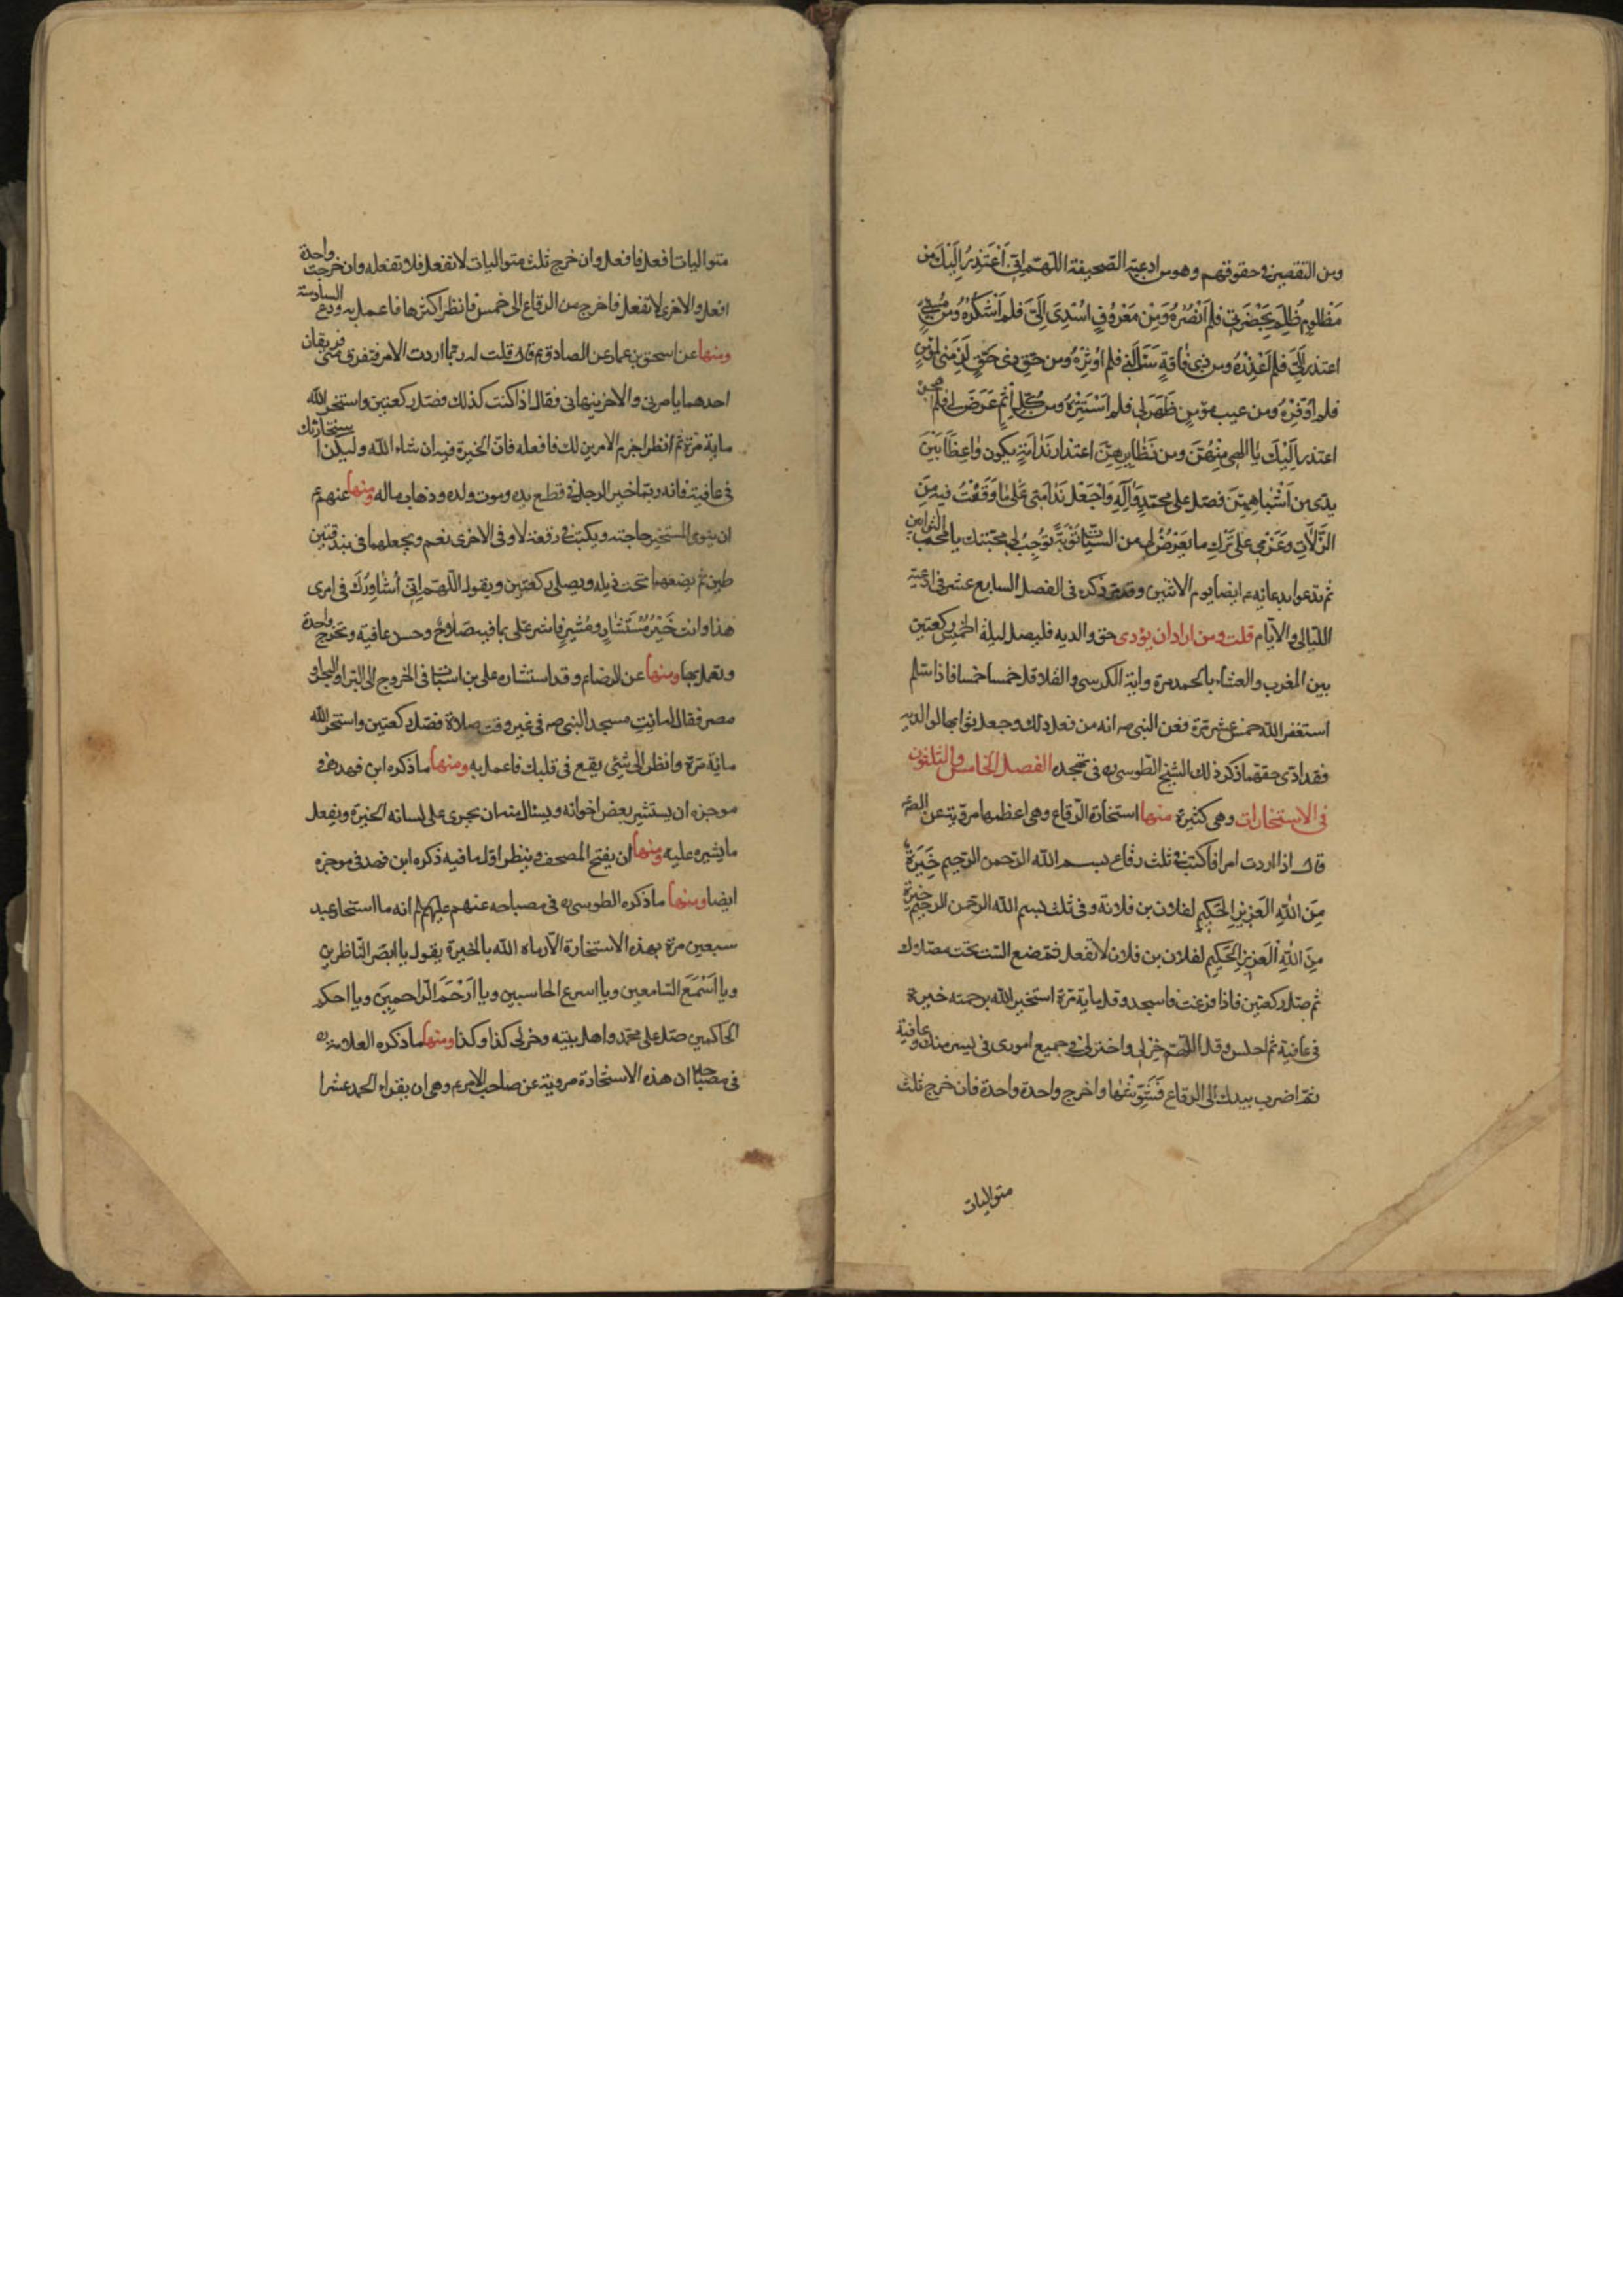 ومن التقصير فى حقوقهم وهو من ادعية الصحيفة اللّهمّ انّى اَعْتَذِرُ اِلَيْكَ مِن
مَظْلُومٍ ظُلِمَ بِحَضْرَتى فلم اَنْصُرْهُ وَمِنْ مَعْرُوفٍ اُسْدِىَ اِلَىَّ فلم اَشْكُرْهُ ومن مُسىءٍ
اعتذر اِلَىَّ فلم اَعْذِرْهُ ومن ذى فاقَةٍ سَئَلَنى فلم اُوثِرْهُ ومن حَقِّ ذى حَقٍّ لَزِمَنى لمؤمنٍ
فلم اُوَفِّرْهُ ومن عيب مؤمنٍ ظَهَرَ لى فلم اَسْتُرْهُ ومن كُلِّ اِثْمٍ عَرَضَ لى فلم اهجره
اعتذر اِلَيْكَ يا الهى مِنْهُنَّ ومن نَظايِرِهِنَّ اعتذار نَدامَةٍ يكون واعِظًا بَيْنَ
يدى من اَشْباهِهِنَّ فصلّ على محمّدٍ وَآلِهِ وَاجْعَلْ نَدامَتى عَلى ما وَقَعْتُ فيه مِنَ
الزَّلّاتِ وعَزْمى على تَرْكِ ما يَعْرِضُ لى من السَّيِّئاتِ تَوْبَةً تُوجِبُ لى محبّتك يا محبّ التوابين
ثم تدعوا بدعائه ع ايضا يوم الاثنين وقد مرّ ذكره فى الفصل السابع عشر فى ادعية
الليالى والايّام قلت ومن اراد ان يؤدى حق والديه فليصل ليلة الخميس ركعتين
بين المغرب والعشاء بالحمد مرة واية الكرسى والقلاقل خمسا خمسا فاذا سلم
استغفر الله خمس عشر مرّة فعن النبى ص انه من فعل ذلك وجعل ثوابها لوالديه
فقد ادّى حقهما ذكر ذلك الشيخ الطوسى ره فى تهجده الفصل الخامس والثلثون
فى الاستخارات وهى كثيرة منها استخارة الرقاع وهى اعظمها مرويّة عن الصّ ع
قال اذا اردت امرا فاكتب فى ثلث رقاع بسم الله الرّحمن الرّحيم خِيَرَةٌ
مِنَ اللهِ العَزيزِ الحَكيمِ لفلان بن فلانة وفى ثلث بسم الله الرّحمن الرحيم خيرة
مِنَ اللهِ العَزيزِ الحَكيمِ لفلان بن فلان لا تفعل فتضع الست تحت مصلاك
ثم صلّ ركعتين فاذا فرغت فاسجد وقل ماية مرّة استخير الله برحمته خيرة
فى عافية ثم اجلس وقل اللّهمّ خر لى واختر لى فى جميع امورى فى يسر منك وعافية
ثمّ اضرب بيدك الى الرقاع فَشَوِّشْها واخرج واحدة واحدة فان خرج ثلث
متواليات
متواليات افعل فافعل وان خرج ثلث متواليات لا تفعل فلا تفعله وان خرجت واحدة
افعل والاخرى لا تفعل فاخرج من الرقاع الى خمس فانظر اكثرها فاعمل به ودع السادسة
ومنها عن اسحق بن عمار عن الصادق ع قال قلت له ربما اردت الامر فتفرق منى فريقان
احدهما يامرنى والاخر ينهانى فقال اذا كنت كذلك فصلّ ركعتين واستخر الله
ماية مرّة ثم انظر اجزم الامرين لك فافعله فانّ الخيرة فيه ان شاء الله وليكن استخارتك
فى عافية فانه ربما خير للرجل فى قطع يده وموت ولده وذهاب ماله ومنها عنهم ع
ان ينوى المستخير حاجته ويكتب فى رقعة لا وفى الاخرى نعم ويجعلهما فى بندقتين
طين ثم يضعهما تحت ذيله ويصلى ركعتين ويقول اللّهمّ انّى اُشاوِرُكَ فى امرى
هذا وانت خَيْرُ مُسْتَشارٍ ومُشيرٍ فاشر على بما فيه صَلاحٌ وحسن عافية وتخرج واحدة
وتعمل بها ومنها عن الرضا ع وقد استشاره على بن اسباط فى الخروج الى البر او البحر الى
مصر فقال له ايت مسجد النبى ص فى غير وقت صلاة فصلّ ركعتين واستخر الله
ماية مرّة وانظر الى شئ يقع فى قلبك فاعمل به ومنها ما ذكره ابن فهد ره فى
موجزه ان يستشير بعض اخوانه ويسئال منه ان يجرى على لسانه الخيرة ويفعل
ما يشيره عليه ومنها ان يفتح المصحف وينظر اوّل ما فيه ذكره ابن فهد فى موجزه
ايضا ومنها ما ذكره الطوسى ره فى مصباحه عنهم عليهم انه ما استخار عبد
سبعين مرّة بهذه الاستخارة الّا رماه الله بالخيرة يقول يا ابصر النّاظرين
ويا اَسْمَعَ السّامعين ويا اسرع الحاسبين ويا اَرْحَمَ الرّاحمين ويا احكم
الحاكمين صلّ على محمّد واهل بيته وخر لى كذا وكذا ومنها ما ذكره العلامة ره
فى مصباحه ان هذه الاستخارة مروية عن صاحب الامر ع وهى ان يقراء الحمد عشرا